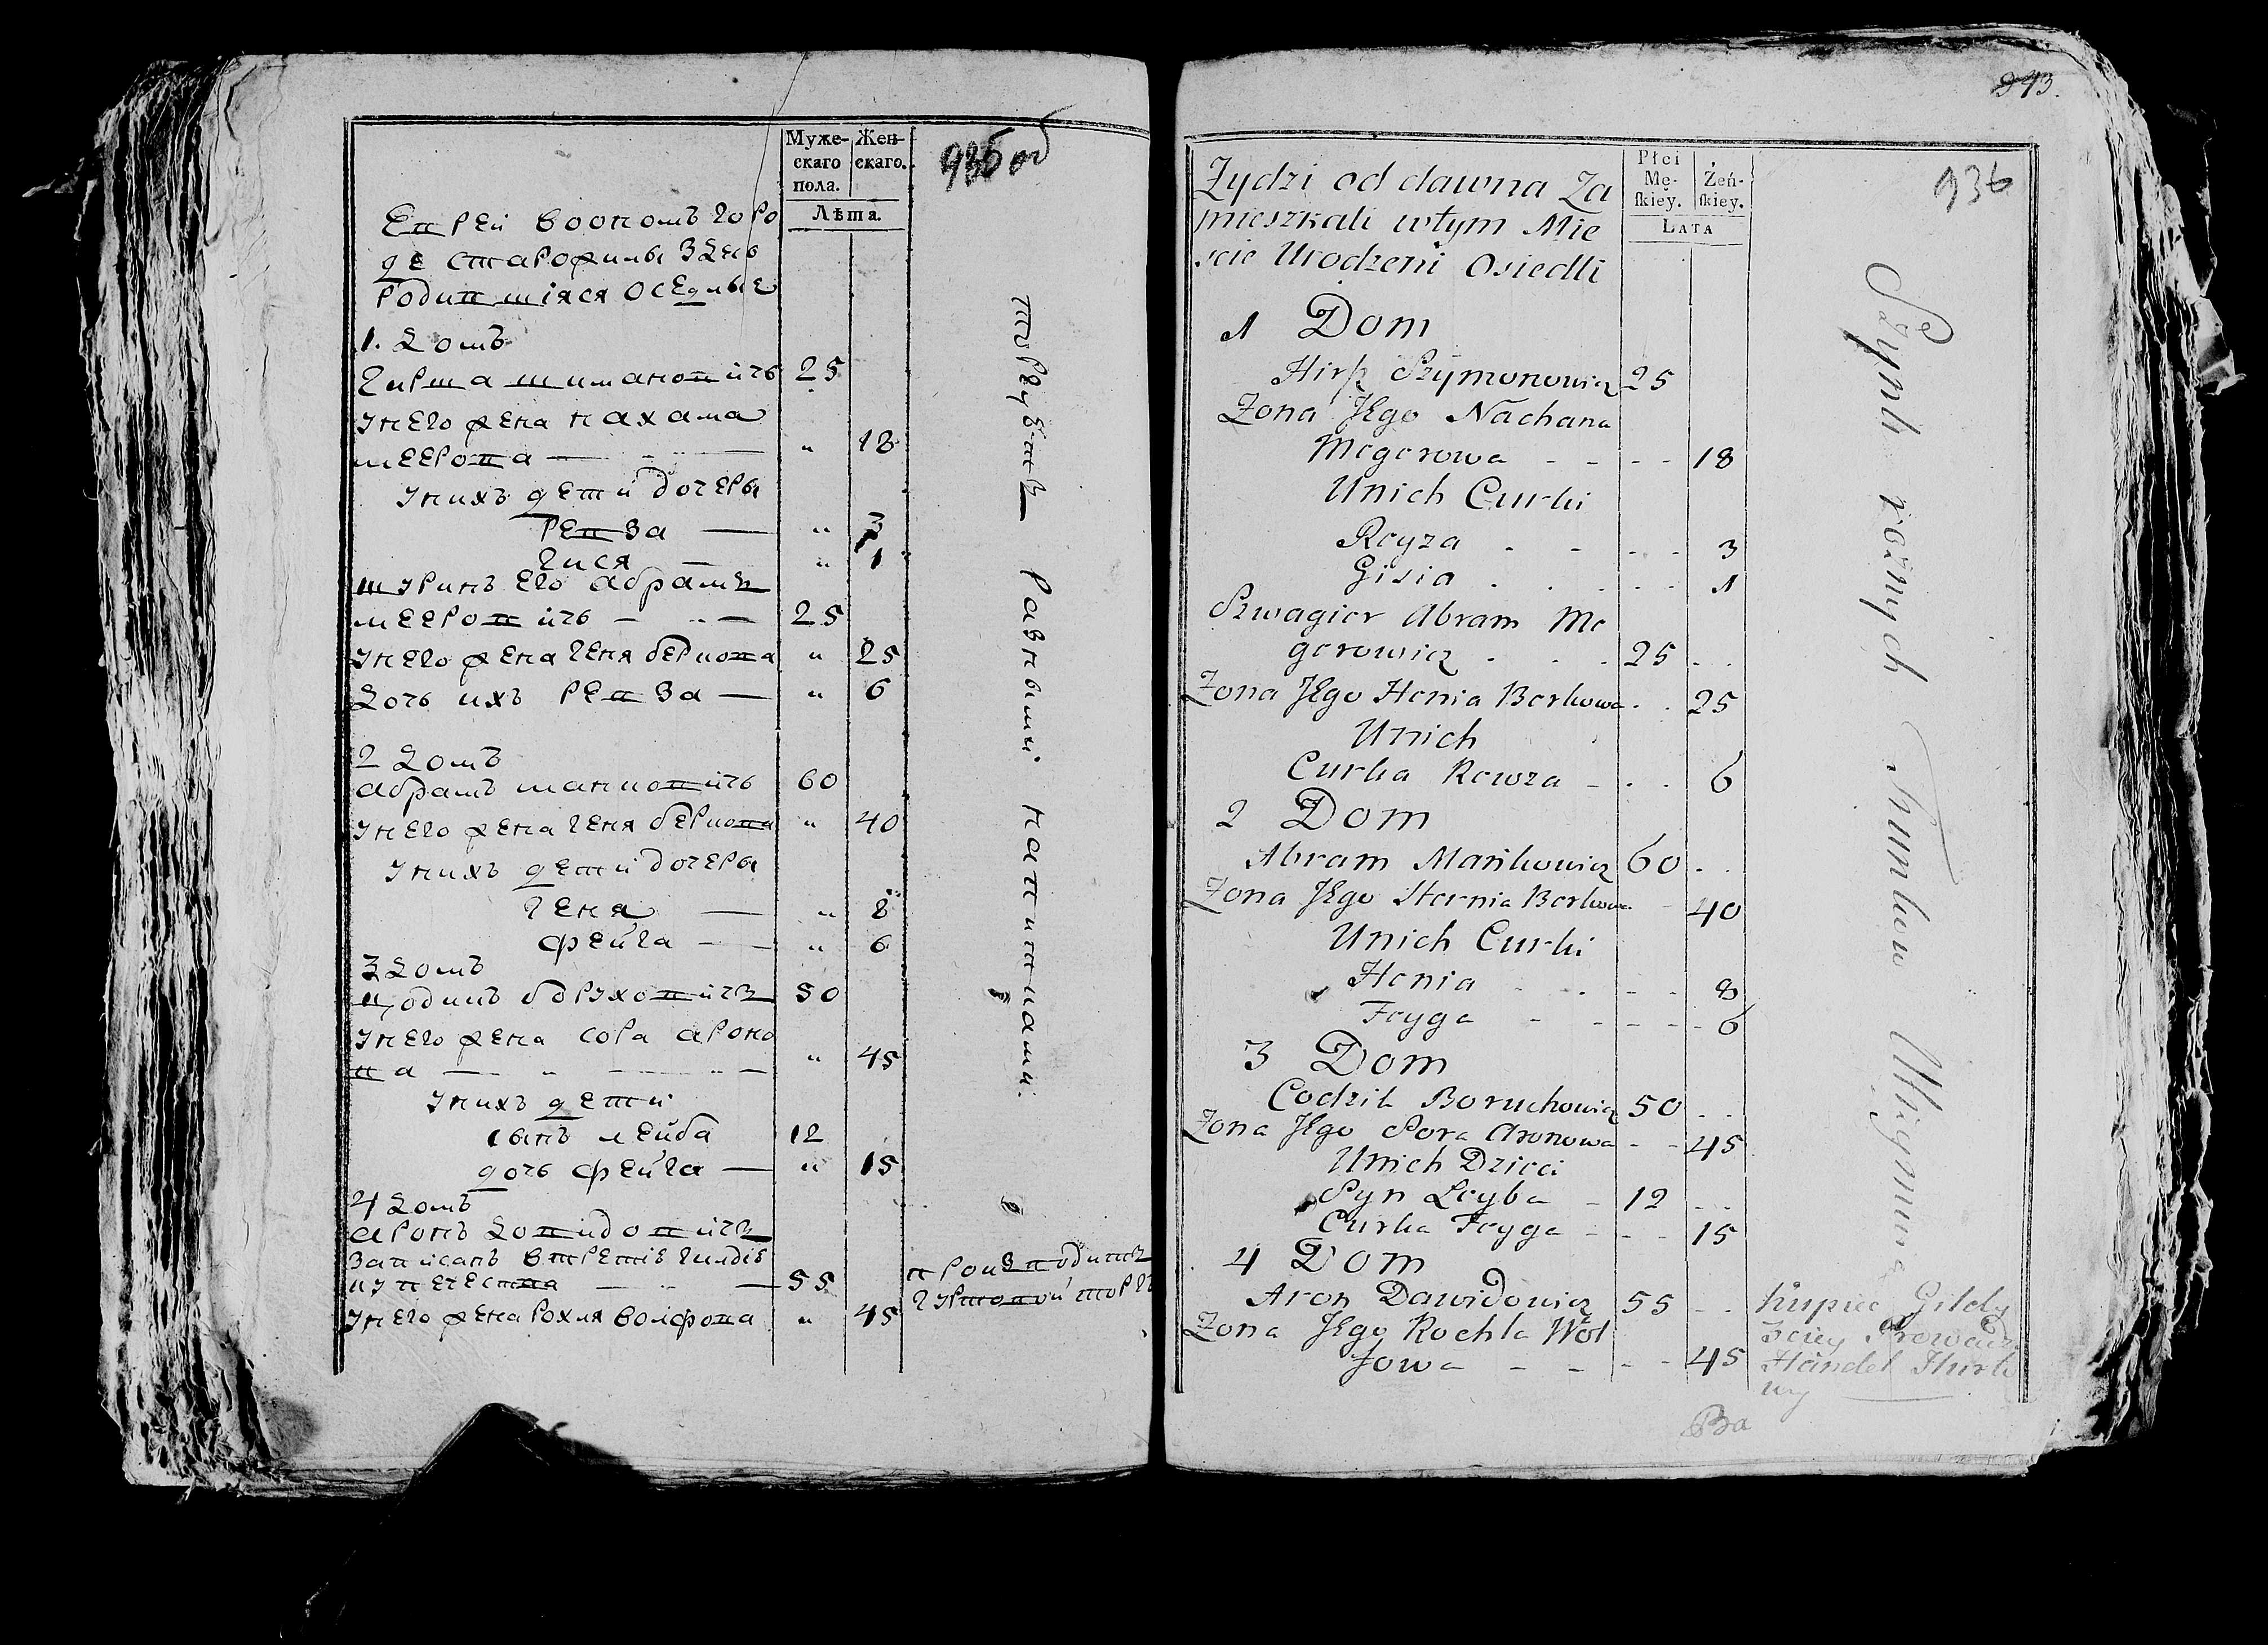 Муже- Жен-
скаго скаго.
пола.
Лѣта.
935 об
Еврей воономъ горо
де старожилы здесь
родившiяся оседлые
1. Домъ
Гирша шимановичь 25
унего жена нахама
меерова — " 18
унихъ дети дочеры
Рейза — " 3
Гися — " 1
шуринъ его абрамъ
меерович — 25
унего жена геня беркова " 25
Дочь ихъ Рейза — " 6
2 Домъ
абрамъ манковичь 60
унего жена геня беркова " 40
унихъ дети дочеры
геня — " 8
фейга — " 6
3 Домъ
цодикъ борухович 50
унего жена сора ароно
ва — " 45
унихъ дети
сынъ лейба 12
дочь фейга — " 15
4 Домъ
аронъ Довидовичъ
записанъ втретiе гилдiе
купечества — 55
унего жена рохля волфова " 45
торгуютъ разными напитками.
производитъ
гуртовой торгъ
843.
936
Płci
Mę- Żeń-
skiey. skiey.
LATA
Zydzi od dawna Za
mieszkali wtym Mie
scie Urodzeni Osiedli
1 Dom
Hirsz Szymonowicz 25
Zona Jego Nachana
Megerowa - - - - 18
Unich Curki
Reyza - - - - 3
Gisia - - - 1
Szwagier Abram Me
gerowicz . . . 25 . .
Zona Jego Henia Berkowa . . 25
Unich
Curka Rewza - . . 6
2 Dom
Abram Mańkowicz 60 . .
Zona Jego Hernia Berkowa - 40
Unich Curki
Henia - . - - 8
Feyga - - - - 6
3 Dom
Codzik Boruchowicz 50 . .
Zona Jego Sora Aronowa - - 45
Unich Dzieci
Syn Leyba - 12 . .
Curka Feyga - - - 15
4 Dom
Aron Dawidowicz 55 - .
Zona Jego Rochla Wol
fowa - - - - 45
Szynk rożnych Trunkow Utrzymuie
kupiec Gildy
3ciey Prowadzi
Handel Hurto
wy —
Ba